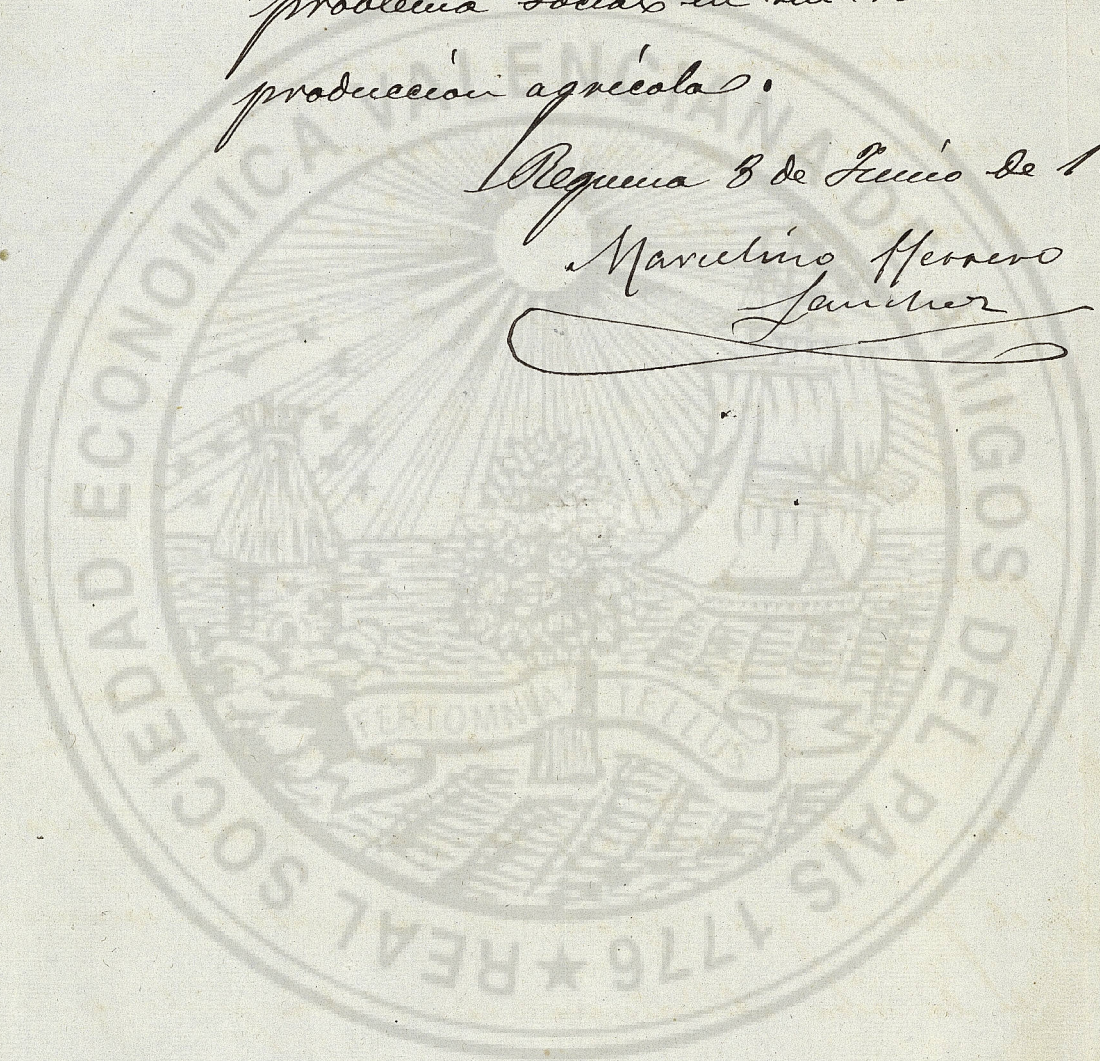 problema social en su
producción agrícola.
Requena 8 de Junio de 1
Marcelino Herrero
Sanchez
REAL SOCIEDAD ECONOMICA VALENCIANA DE AMIGOS DEL PAIS 1776 ★
FERT OMNIA TELLUS